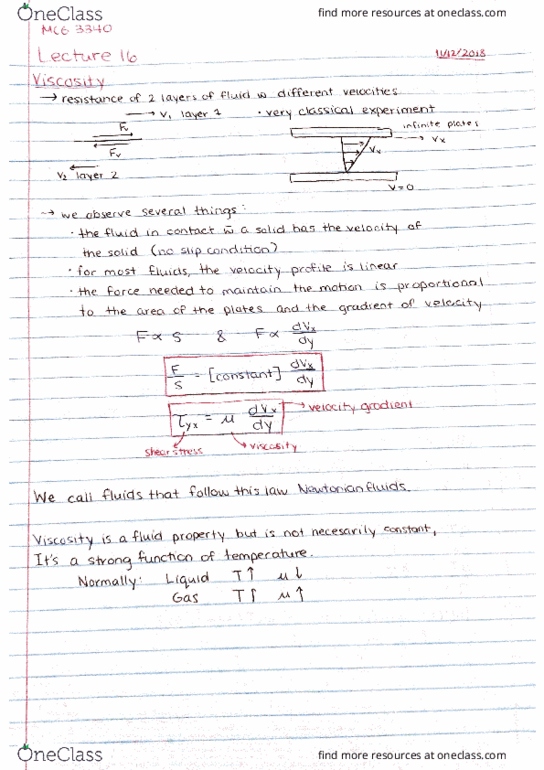 OneClass find more resources at oneclass.com
MCG 3340
Lecture 16 11/12/2018
Viscosity
→ resistance of 2 layers of fluid w different velocities
→ V₁ layer 1 · very classical experiment
Fv infinite plates
Fv → Vx
Vx
V₂ layer 2
V=0
→ we observe several things:
· the fluid in contact w̄ a solid has the velocity of
the solid (no slip condition)
· for most fluids, the velocity profile is linear
· the force needed to maintain the motion is proportional
to the area of the plates and the gradient of velocity
F ∝ S & F ∝ dVx/dy
F/S = [constant] dVx/dy
τyx = μ dVx/dy → velocity gradient
shear stress viscosity
We call fluids that follow this law Newtonian fluids.
Viscosity is a fluid property but is not necesarily constant,
It's a strong function of temperature.
Normally: Liquid T↑ μ↓
Gas T↑ μ↑
OneClass find more resources at oneclass.com